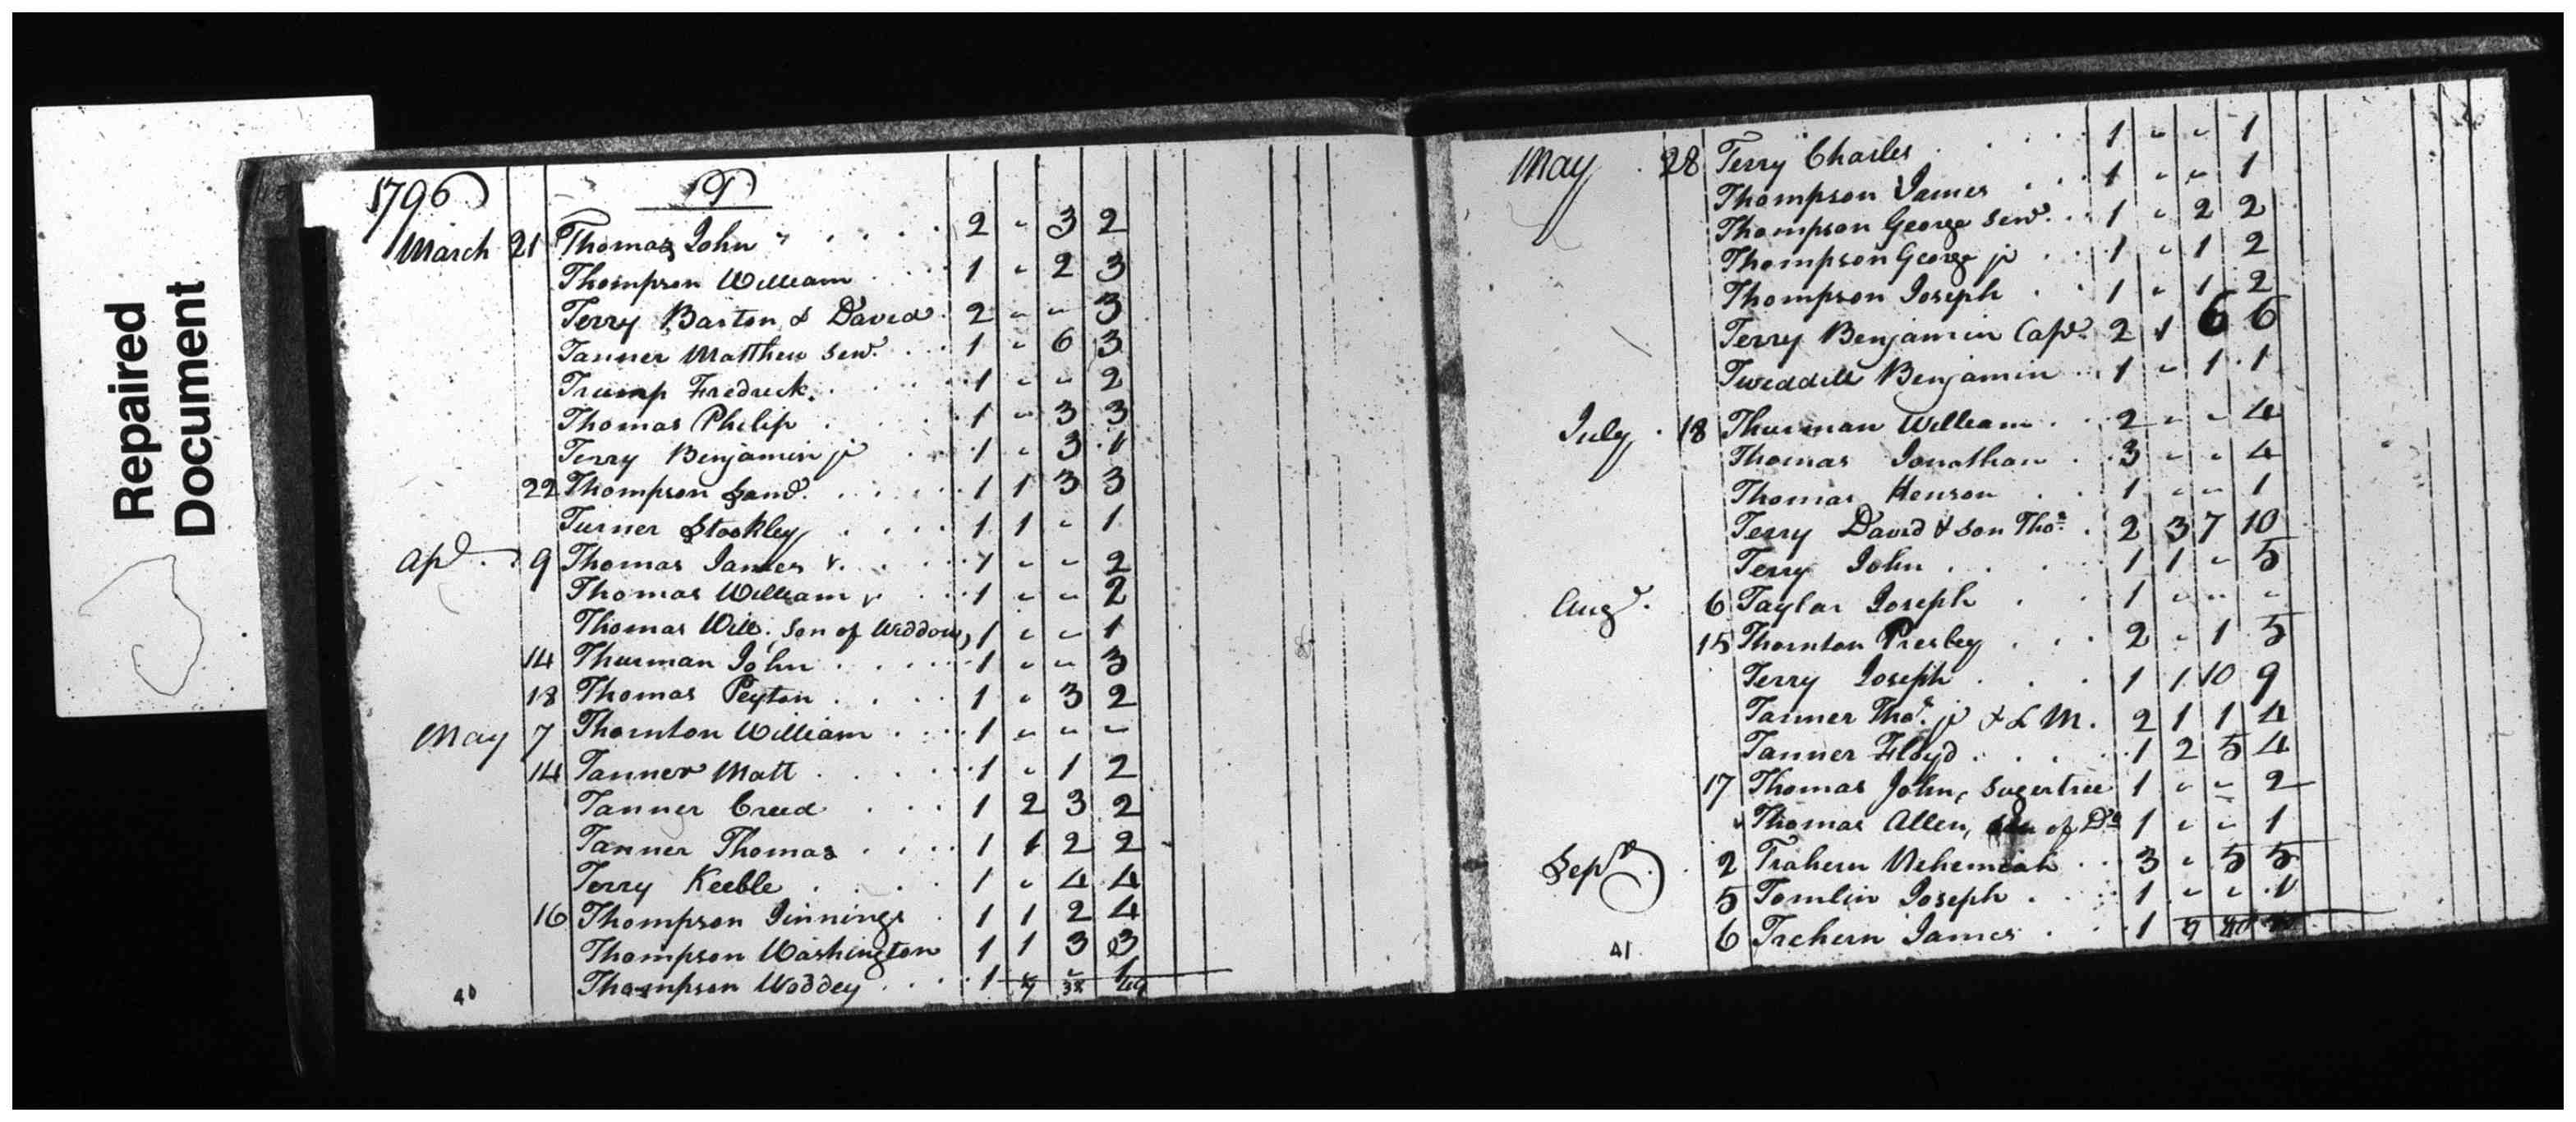 Repaired
Document
1796 T
March 21 Thomas John 2 " 3 2
Thompson William 1 " 2 3
Terry Barton & David 2 " " 3
Tanner Matthew Senr. 1 " 6 3
Trump Fredrick 1 " " 2
Thomas Philip 1 " 3 3
Terry Benjamin jr 1 " 3 1
22 Thompson Saml. 1 1 3 3
Turner Stockley 1 1 " 1
Apl. 9 Thomas James 1 " " 2
Thomas William 1 " " 2
Thomas Will. Son of Widdow, 1 " " 1
14 Thurman John 1 " " 3
18 Thomas Peyton 1 " 3 2
May 7 Thornton William 1 " " "
14 Tanner Matt 1 " 1 2
Tanner Creed 1 2 3 2
Tanner Thomas 1 1 2 2
Terry Keeble 1 " 4 4
16 Thompson Jinnings 1 1 2 4
Thompson Washington 1 1 3 3
Thompson Woddey 1 " 1
7 38 49
40
May 28 Terry Charles 1 " " 1
Thompson James 1 " " 1
Thompson George Senr. 1 " 2 2
Thompson George jr 1 " 1 2
Thompson Joseph 1 " 1 2
Terry Benjamin Capt. 2 1 6 6
Tweddill Benjamin 1 " 1 1
July 18 Thurman William 2 " " 4
Thomas Jonathan 3 " " 4
Thomas Henson 1 " " 1
Terry David & Son Thos. 2 3 7 10
Terry John 1 1 " 5
Augt. 6 Taylor Joseph 1 " " "
15 Thornton Presley 2 " 1 5
Terry Joseph 1 1 10 9
Tanner Thos. jr & L M. 2 1 1 4
Tanner Floyd 1 2 5 4
17 Thomas John, Sugertree 1 " " 2
Thomas Allen, son of Do 1 " " 1
Sepr. 2 Trahern Nehemiah 3 " 5 5
5 Tomlin Joseph 1 " " 1
6 Trehern James 1 9 40
41